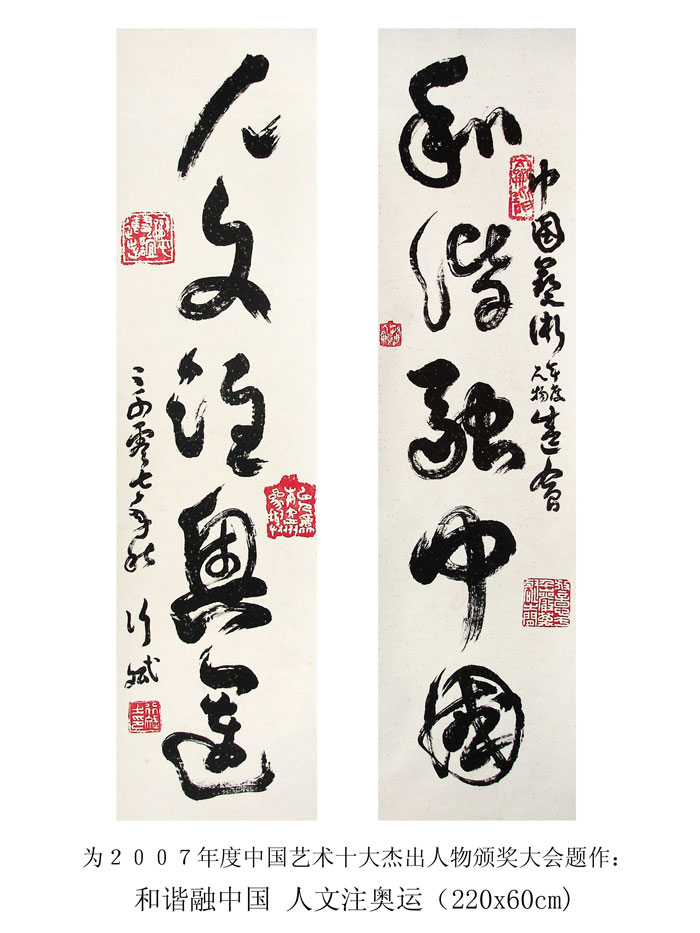 和谐融中国
中国艺术年度人物盛会
人文注奥運
二〇零七年秋 行斌
为２００７年度中国艺术十大杰出人物颁奖大会题作：
和谐融中国 人文注奥运（220x60cm)